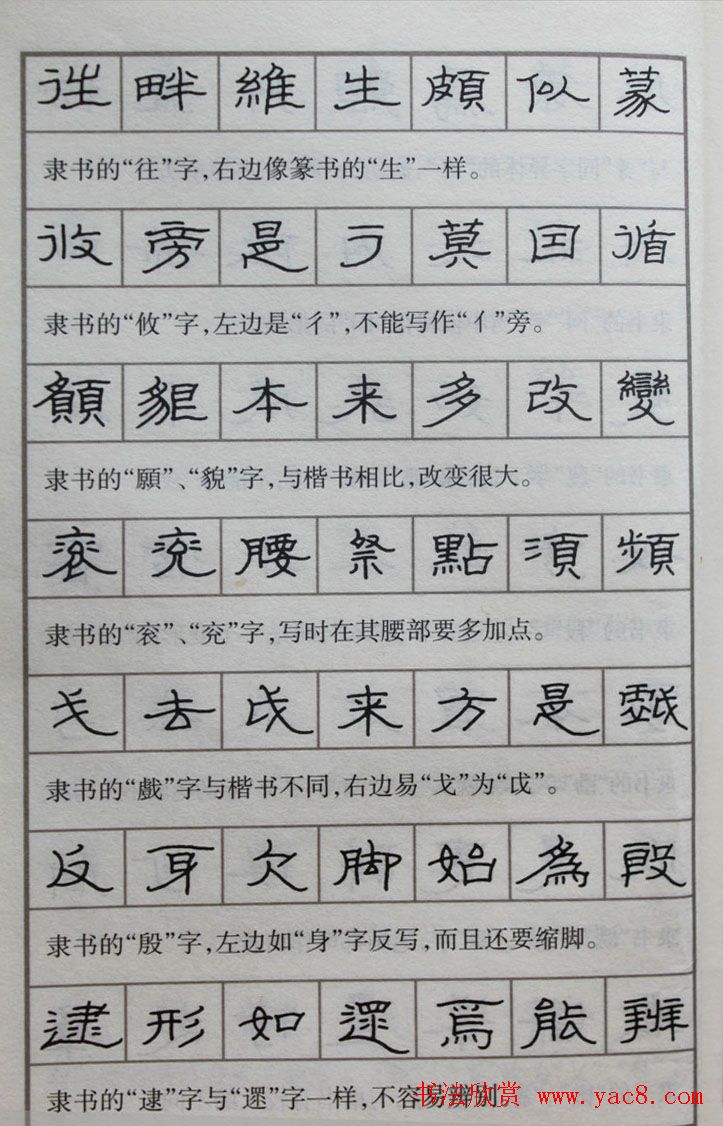 往畔維生頗似篆
隶书的“往”字，右边像篆书的“生”一样。
攸旁是亍莫囯循
隶书的“攸”字，左边是“彳”，不能写作“亻”旁。
願貌本来多改變
隶书的“願”、“貌”字，与楷书相比，改变很大。
衮兖腰祭點須頻
隶书的“衮”、“兖”字，写时在其腰部要多加点。
戈去戉来方是戲
隶书的“戲”字与楷书不同，右边易“戈”为“戉”。
反身欠脚始為殷
隶书的“殷”字，左边如“身”字反写，而且还要缩脚。
逮形如遝焉能辨
隶书的“逮”字与“遝”字一样，不容易辨别。
书法欣赏 www.yac8.com